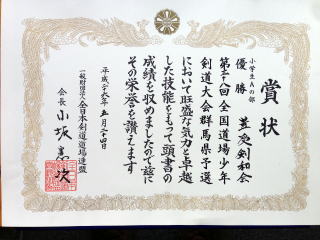 賞状
小学生Aの部
優勝 並愛剣和会
全国道場少年
剣道大会群馬県予選
において旺盛な気力と卓越
した技能をもって頭書の
成績を収めましたので茲に
その栄誉を讃えます
平成二十九年五月二十四日
一般財団法人全日本剣道道場連盟
会長 小坂憲次